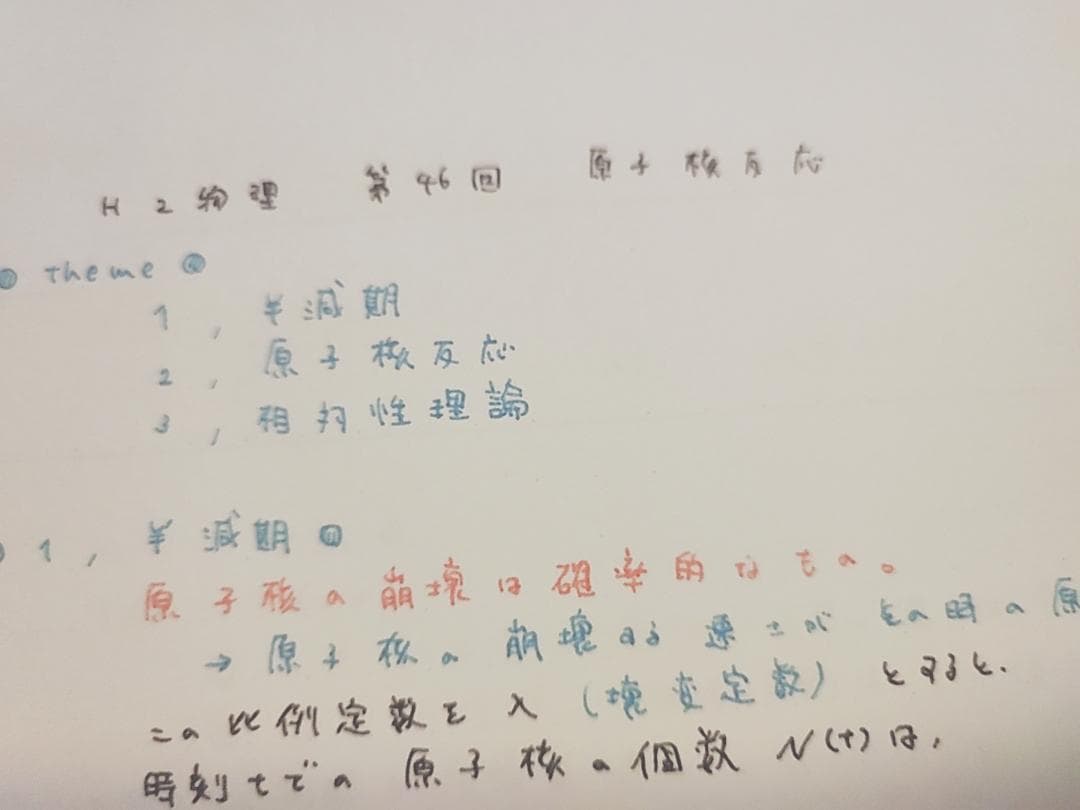 H2物理 第46回 原子核反応
● theme ●
1, 半減期
2, 原子核反応
3, 相対性理論
1, 半減期 ●
原子核の崩壊は確率的なもの。
→ 原子核の崩壊する速さがその時の原
この比例定数をλ(壊変定数)とすると、
時刻tでの原子核の個数N(t)は,